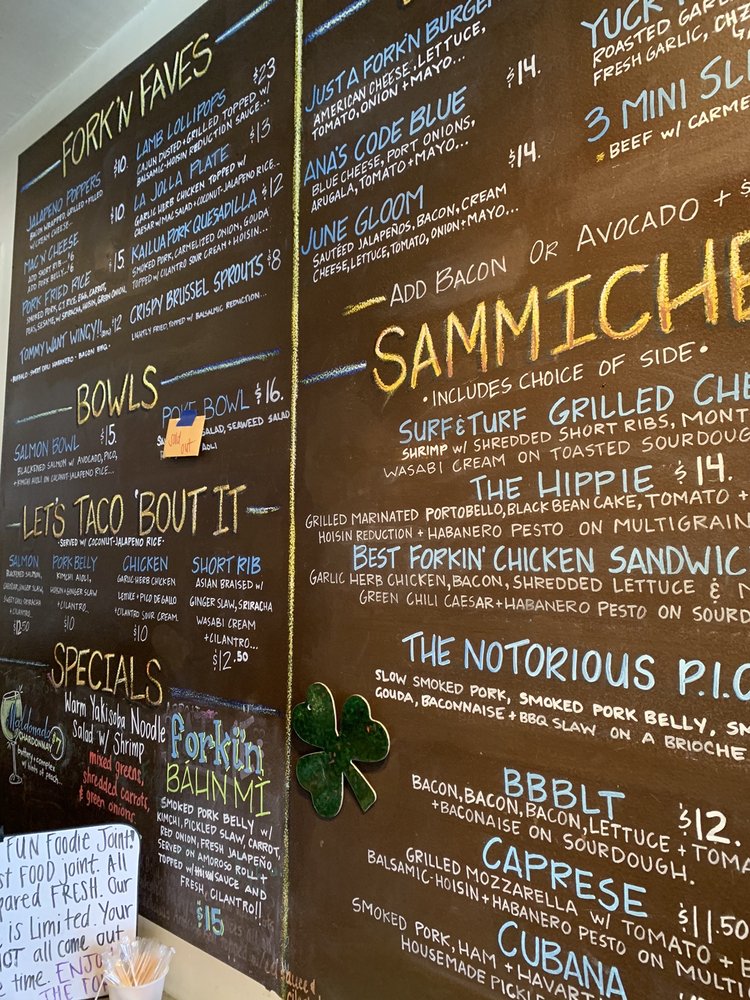 FORK'N FAVES
JALAPEÑO POPPERS $10
BACON WRAPPED, GRILLED + FILLED
W/ CREAM CHEESE...
MAC N' CHEESE $10
ADD SHORT RIB.. $6
ADD PORK BELLY.. $6
PORK FRIED RICE $15
SMOKED PORK, CJ RICE, EGG, CARROT,
PEAS, SESAME, W/ SRIRACHA, HOISIN, GREEN ONION,
TOMMY WANT WINGY!! $12
-BUFFALO - SWEET CHILI HABANERO - BACON BBQ-
LAMB LOLLIPOPS $23
CAJUN DUSTED + GRILLED TOPPED W/
BALSAMIC-HOISIN REDUCTION SAUCE...
LA JOLLA PLATE $13
GARLIC HERB CHICKEN TOPPED W/
CAESAR W/ MAC SALAD + COCONUT-JALAPEÑO RICE...
KAILUA PORK QUESADILLA $12
SMOKED PORK, CARMELIZED ONION, GOUDA
TOPPED W/ CILANTRO SOUR CREAM + HOISIN...
CRISPY BRUSSEL SPROUTS $8
LIGHTLY FRIED, TOPPED W/ BALSAMIC REDUCTION...
BOWLS
SALMON BOWL $15.
BLACKENED SALMON W/ AVOCADO, PICO,
+ KIMCHI AIOLI ON COCONUT-JALAPEÑO RICE...
POKE BOWL $16.
SALAD, SEAWEED SALAD
Sold out
LET'S TACO 'BOUT IT
-SERVED W/ COCONUT-JALAPEÑO RICE-
SALMON
BLACKENED SALMON,
GINGER SLAW,
SWEET CHILI SRIRACHA
+ CILANTRO
$12.50
PORK BELLY
KIMCHI AIOLI,
HOISIN + GINGER SLAW
+ CILANTRO...
$10
CHICKEN
GARLIC HERB CHICKEN
LETTUCE + PICO DE GALLO
+ CILANTRO SOUR CREAM.
$10
SHORT RIB
ASIAN BRAISED W/
GINGER SLAW, SRIRACHA
WASABI CREAM
+ CILANTRO...
$12.50
SPECIALS
Maldonado $7
CHARDONNAY
buttery + complex
w/ hints of peach..
Warm Yakisoba Noodle
Salad w/ Shrimp
mixed greens,
shredded carrots,
& green onions.
forkin'
BÁHN MÍ
SMOKED PORK BELLY W/
KIMCHI, PICKLED SLAW, CARROT,
RED ONION, FRESH JALAPEÑO
SERVED ON AMOROSO ROLL +
TOPPED W/ HOISIN SAUCE AND
FRESH, CILANTRO!!
$15
FUN Foodie Joint!
FOOD joint. All
FRESH. Our
is Limited. Your
all come out
time. ENJOY
JUST A FORK'N BURGER $14.
AMERICAN CHEESE, LETTUCE,
TOMATO, ONION + MAYO...
ANA'S CODE BLUE $14.
BLUE CHEESE, PORT ONIONS,
ARUGALA, TOMATO + MAYO...
JUNE GLOOM
SAUTÉED JALAPEÑOS, BACON, CREAM
CHEESE, LETTUCE, TOMATO, ONION + MAYO...
YUCK
ROASTED GARLIC
FRESH GARLIC,
3 MINI
BEEF W/
ADD BACON OR AVOCADO + $
SAMMICHE
• INCLUDES CHOICE OF SIDE •
SURF & TURF GRILLED
SHRIMP W/ SHREDDED SHORT RIBS,
WASABI CREAM ON TOASTED
THE HIPPIE $14.
GRILLED MARINATED PORTOBELLO, BLACK BEAN CAKE, TOMATO +
HOISIN REDUCTION + HABANERO PESTO ON MULTIGRAIN
BEST FORKIN' CHICKEN
GARLIC HERB CHICKEN, BACON, SHREDDED LETTUCE &
GREEN CHILI CAESAR + HABANERO PESTO ON
THE NOTORIOUS P.I.
SLOW SMOKED PORK, SMOKED PORK BELLY,
GOUDA, BACONNAISE + BBQ SLAW ON A BRIOCHE
BBBLT $12.
BACON, BACON, BACON, LETTUCE +
+ BACONAISE ON SOURDOUGH.
CAPRESE $11.50
GRILLED MOZZARELLA W/ TOMATO +
BALSAMIC-HOISIN + HABANERO PESTO ON
CUBANA
SMOKED PORK, HAM +
HOUSEMADE